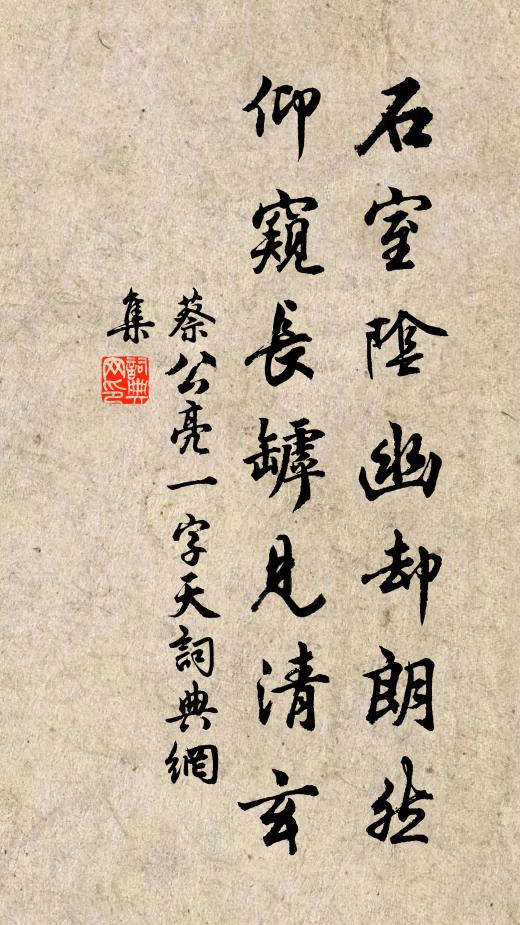 石室陰幽却朗然
仰窺長罅見清玄
蔡公亮一字天詞典網
集
詞典網印